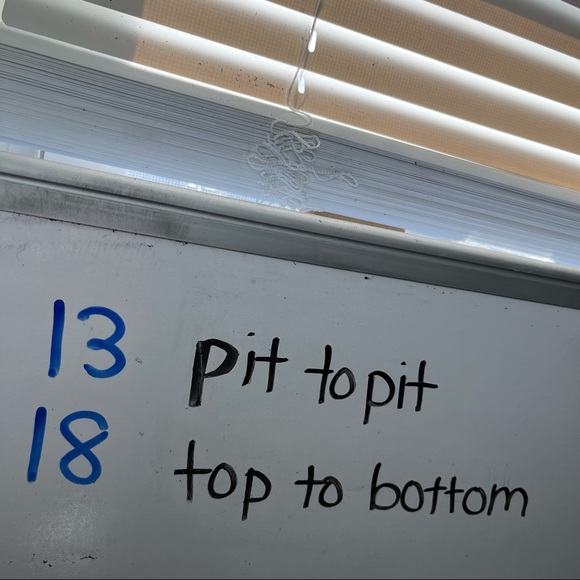 13 pit to pit
18 top to bottom